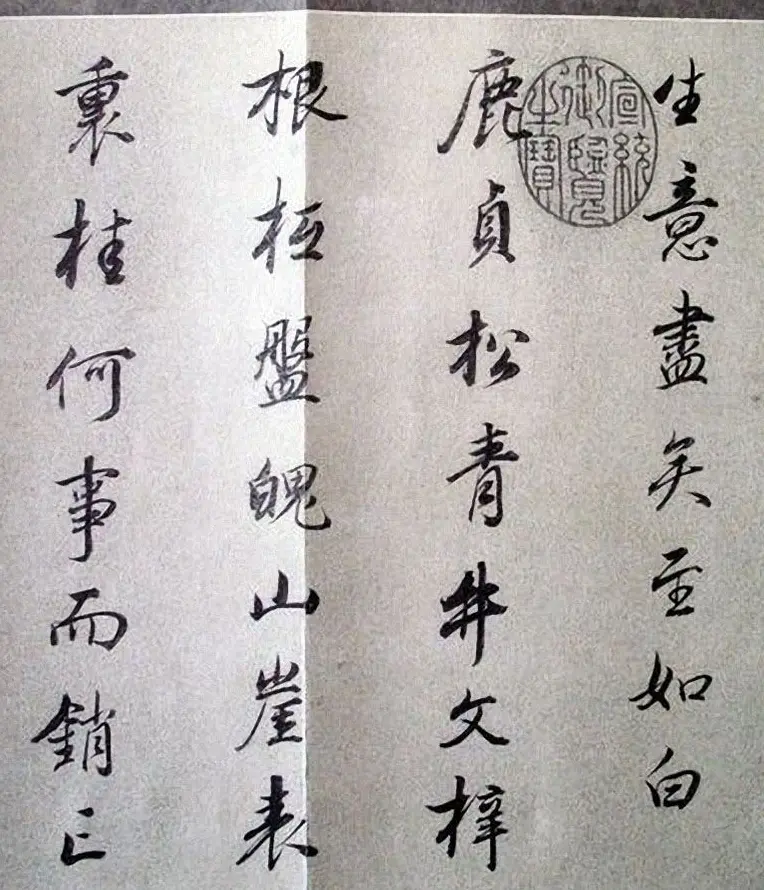 生意盡矣至如白
鹿貞松青牛文梓
根柢盤魄山崖表
裏桂何事而銷亡
宣統
御覽
之寶